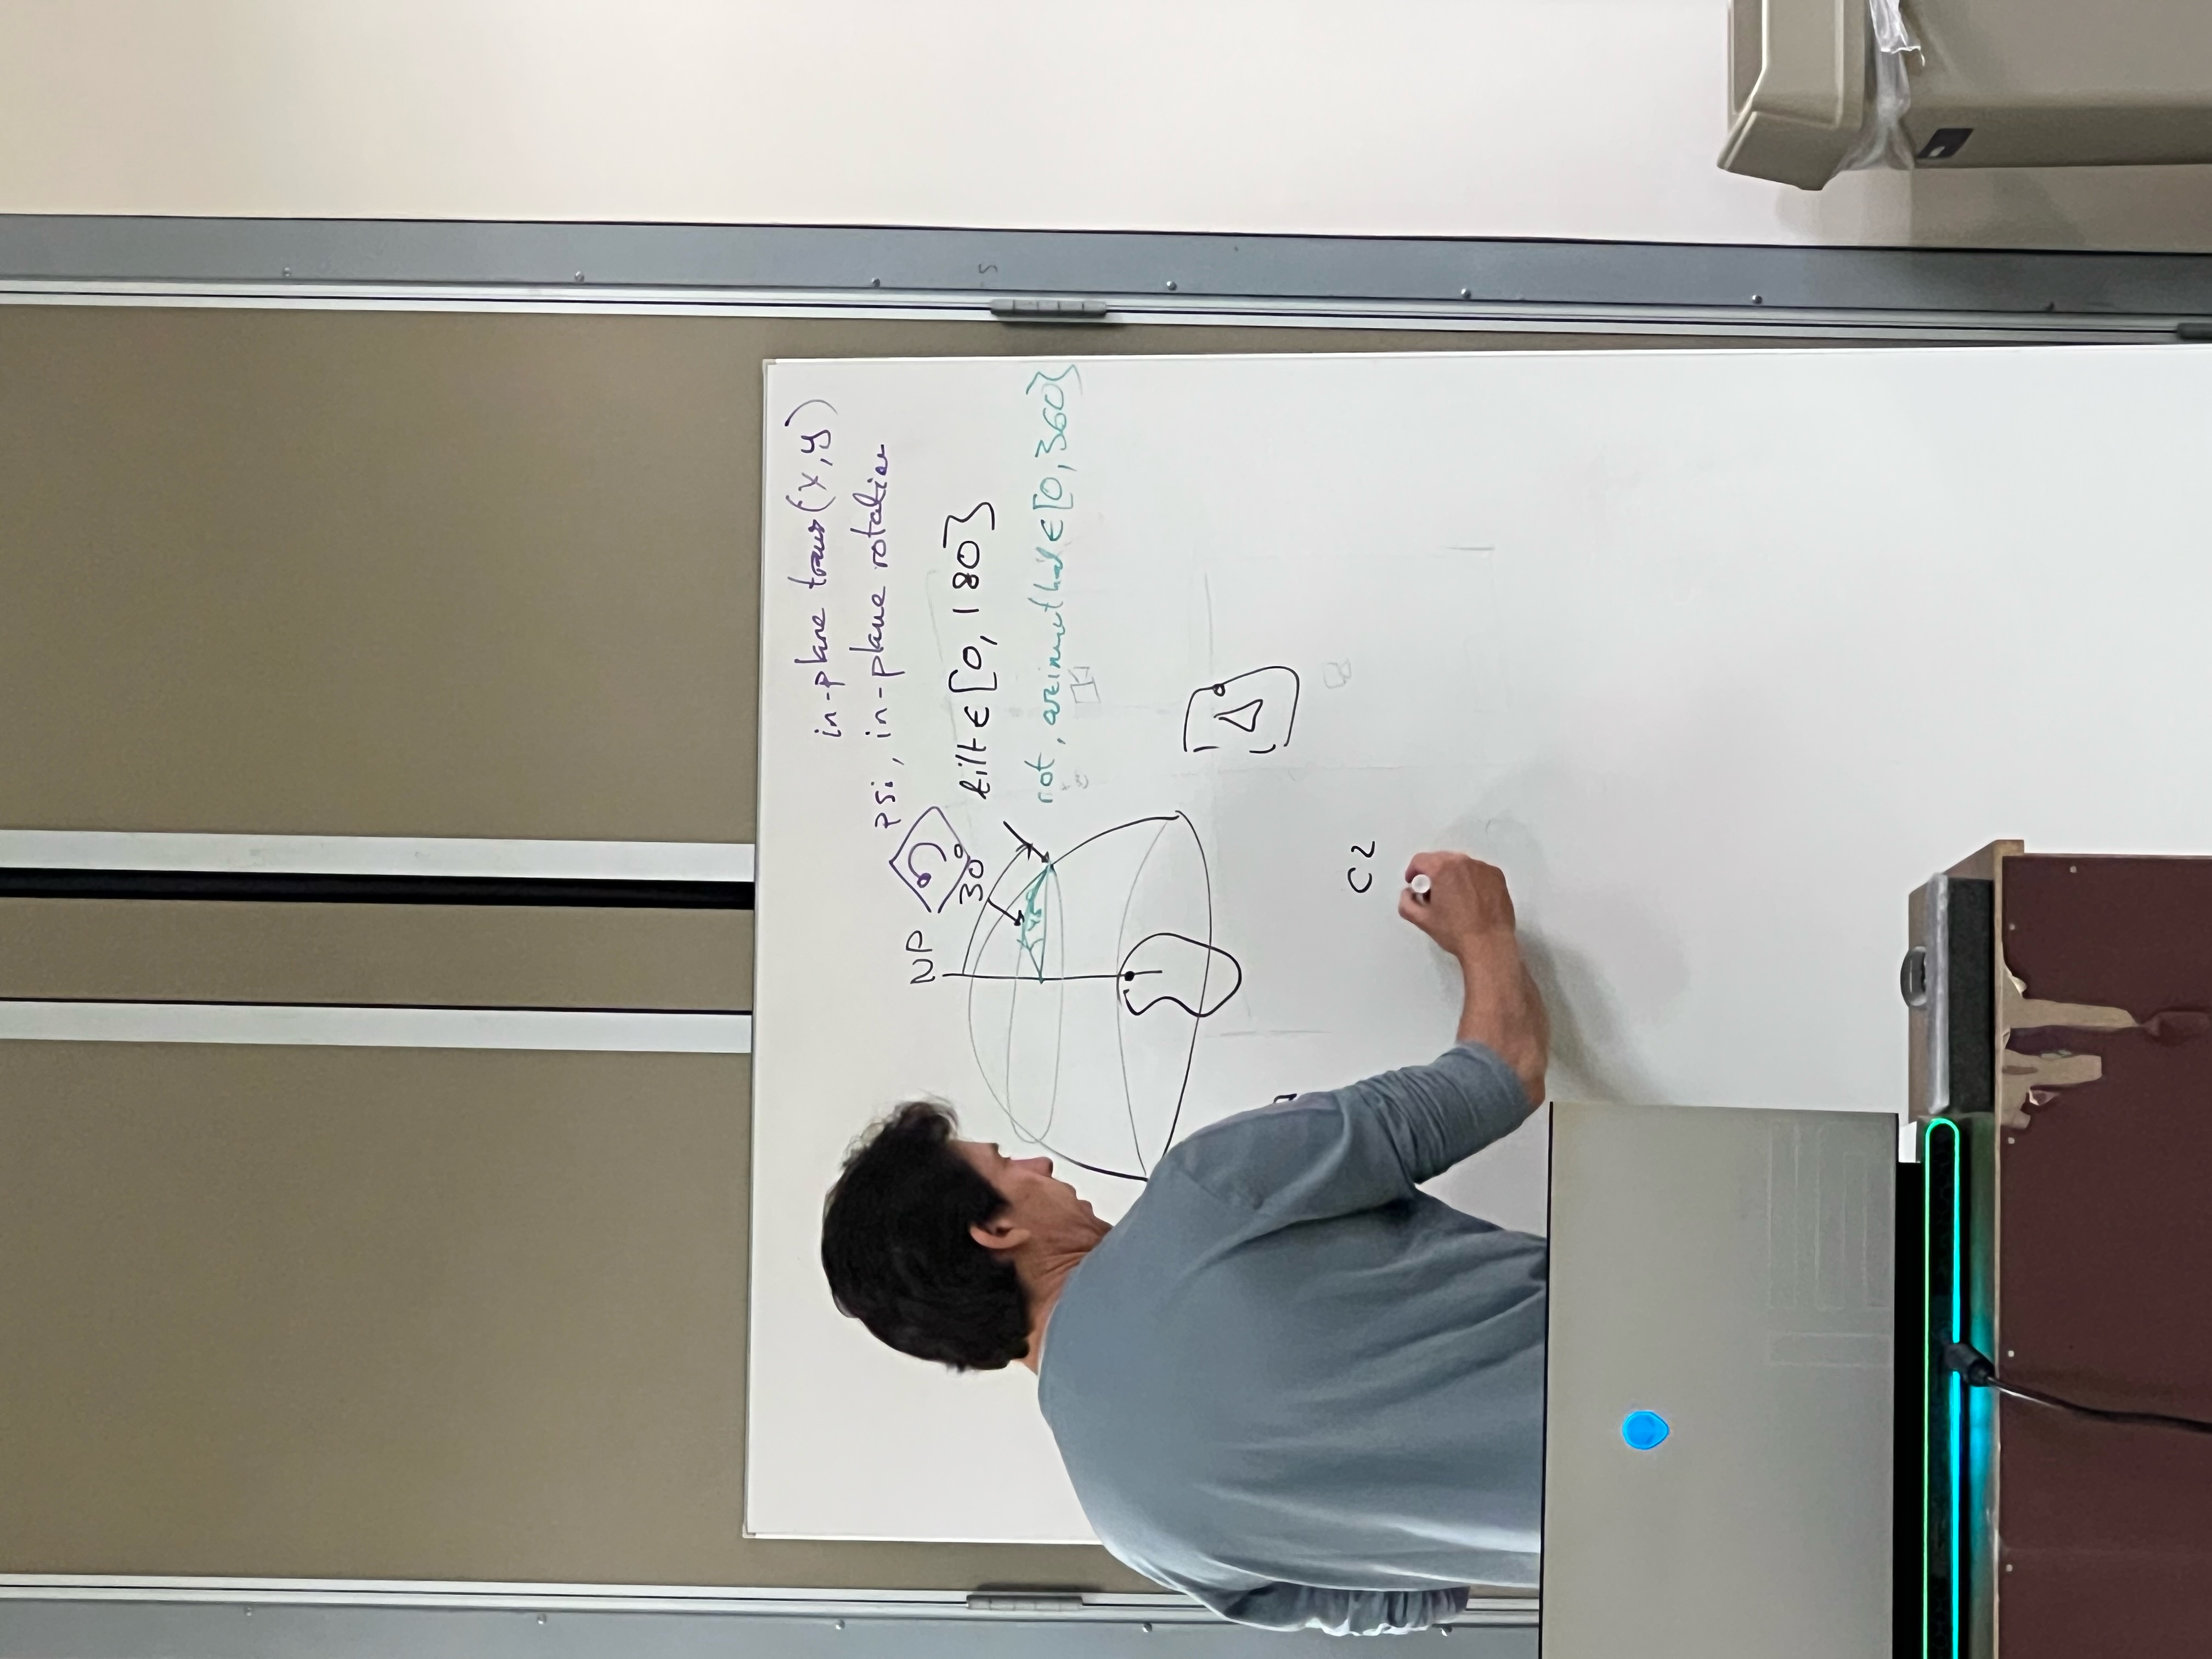 in-plane trans(x,y)
psi, in-plane rotation
NP
30°
tilt ∈ [0, 180}
45°
rot, azimuthal ∈ [0, 360}
C2